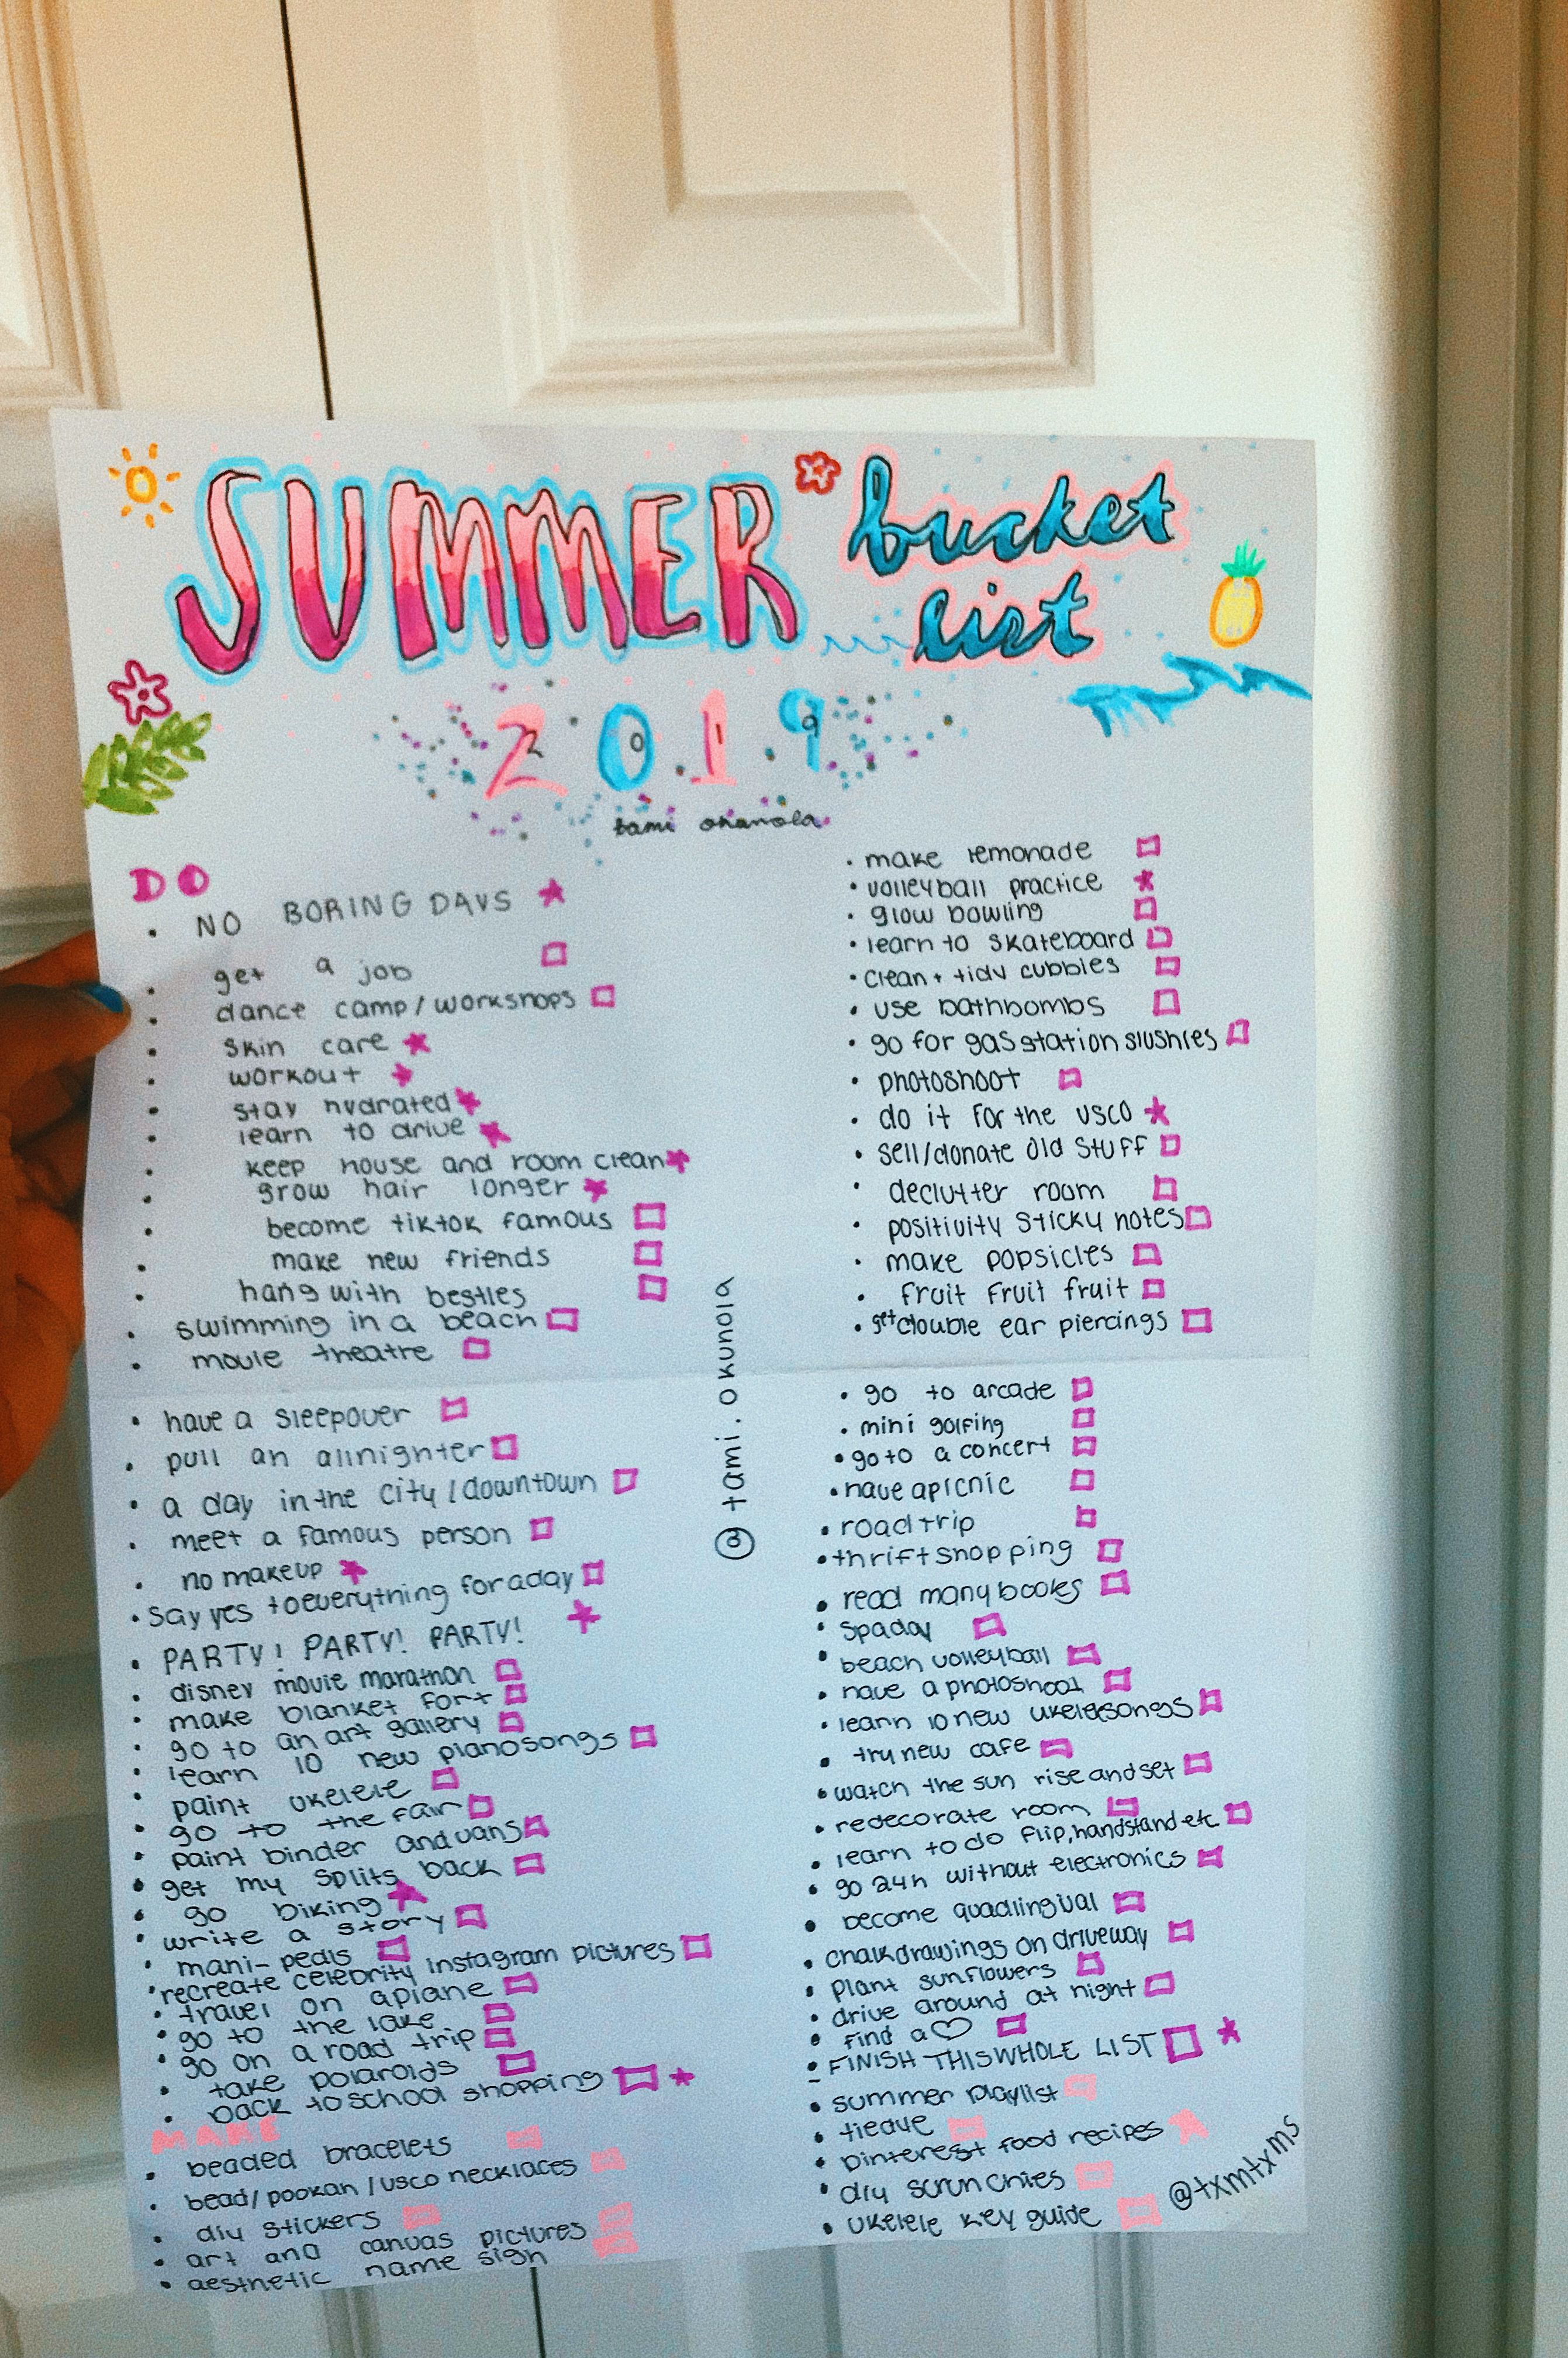 SUMMER bucket
list
2019
tami okunola
DO
• NO BORING DAYS
• get a job
• dance camp/workshops
• skin care
• workout
• stay hydrated
• learn to drive
• keep house and room clean
• grow hair longer
• become tiktok famous
• make new friends
• hang with besties
• swimming in a beach
• movie theatre
• have a sleepover
• pull an allnighter
• a day in the city/downtown
• meet a famous person
• no makeup
• say yes to everything for a day
• PARTY! PARTY! PARTY!
• disney movie marathon
• make blanket fort
• go to an art gallery
• learn 10 new piano songs
• paint ukelele
• go to the fair
• paint binder and vans
• get my splits back
• go biking
• write a story
• mani-pedis
• recreate celebrity instagram pictures
• travel on a plane
• go to the lake
• go on a road trip
• take polaroids
• back to school shopping
MAKE
• beaded bracelets
• bead/pookah/vsco necklaces
• diy stickers
• art and canvas pictures
• aesthetic name sign
@tami.okunola
• make lemonade
• volleyball practice
• glow bowling
• learn to skateboard
• clean + tidy cubbies
• use bathbombs
• go for gas station slushies
• photoshoot
• do it for the vsco
• sell/donate old stuff
• declutter room
• positivity sticky notes
• make popsicles
• fruit fruit fruit
• get double ear piercings
• go to arcade
• mini golfing
• go to a concert
• have a picnic
• road trip
• thrift shopping
• read many books
• spa day
• beach volleyball
• have a photoshoot
• learn 10 new songs
• try new cafe
• watch the sun rise and set
• redecorate room
• learn to do flip, handstand etc
• go 24h without electronics
• become quadlingual
• chalk drawings on driveway
• plant sunflowers
• drive around at night
• find a ♡
• FINISH THIS WHOLE LIST
• summer playlist
• tiedye
• pinterest food recipes
• diy scrunchies
• ukelele key guide
@txmtxms